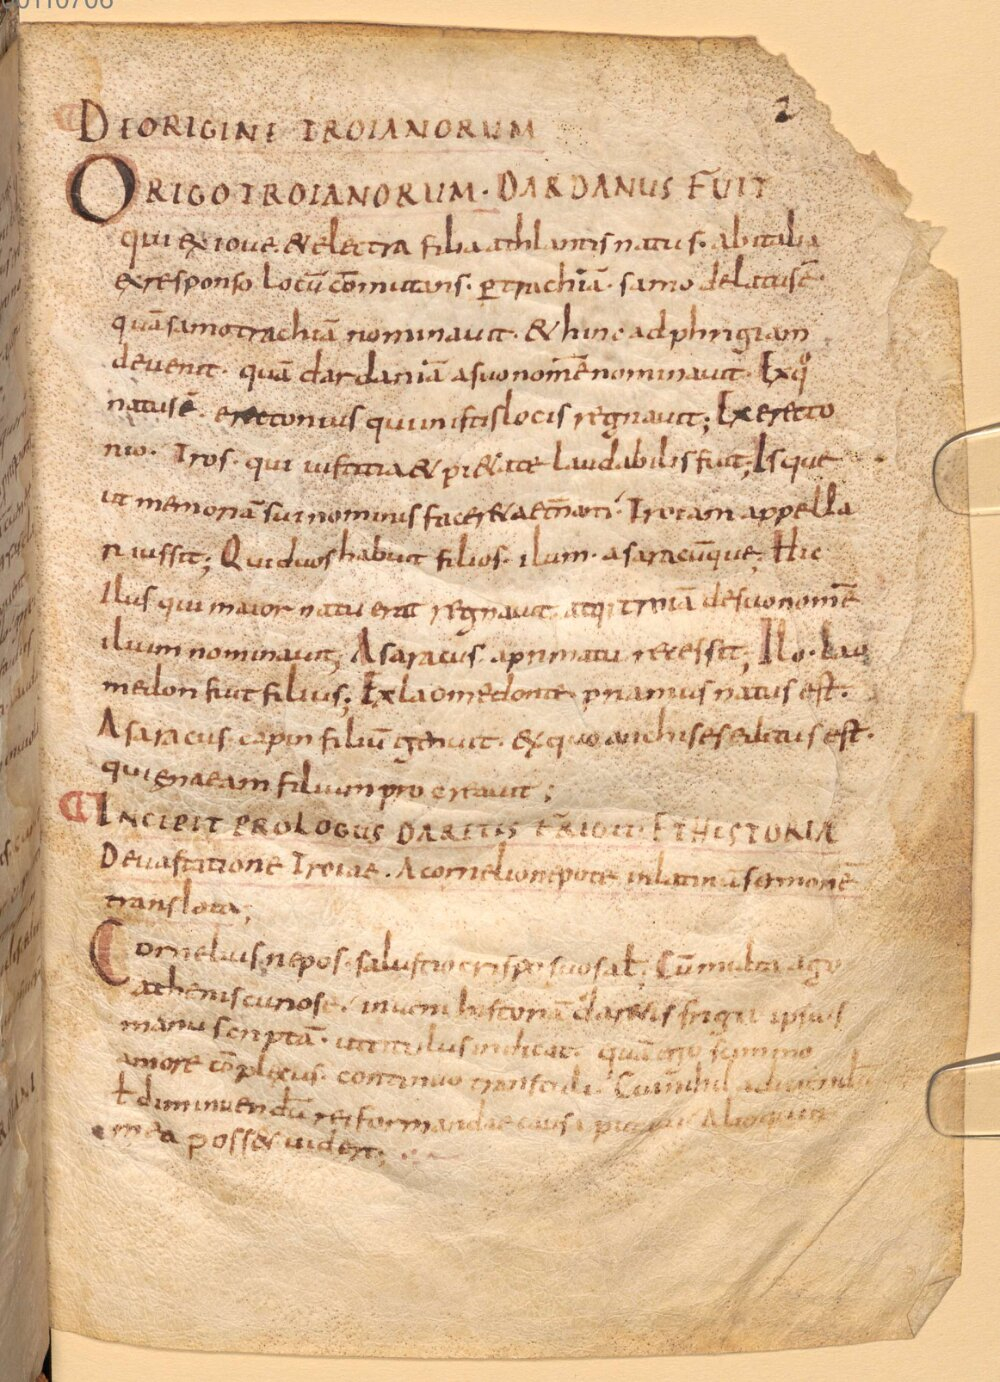 2
DE ORIGINE TROIANORUM
ORIGO TROIANORUM · DARDANUS FUIT
qui ex ioue & electra filia athlantis natus · ab italia
ex responso locū cōmutans · p̱ trachiā · samo delatus ē ·
quā samotrachiā nominauit · & hinc ad phrigiam
deuenit · quā dardaniā a suo nom̄e nominauit · Ex q̊
natus ē · erectonius qui in istis locis regnauit ; Ex erecto
nio · Tros · qui iustitia & pi&ate laudabilis fuit ; Is que
ut memoriā sui nominis facer& aet̄nā · Troiam appella
ri iussit ; Qui duos habuit filios · ilum · asaracūque ; Hic
Ilus qui maior natu erat regnauit · atq; troiā de suo nom̄e
ilium nominauit ; Asaracus a primatu recessit ; Ilo · Lao
medon fuit filius ; Ex laomedonte · priamus natus est ·
Asaracus capin filiū genuit · ex quo anchises editus est ·
qui eneam filium procreauit ;
INCIPIT PROLOGUS DARETIS FRIGII · ET HISTORIA
De uastatione Troiae · A cornelio nepote in latinū sermonē
translata ;
Cornelius nepos · salustio crispo suo sal̄ ; Cū multa ago
athenis curiose · inueni historiā dar&is frigii ipsius
manu scriptā · ut titulus indicat · quā ego summo
amore cōplexus · continuo transtuli · Cui nihil adiciendū
ł diminuendū rei formandae causa putaui Alioquin
mea poss& uideri ;